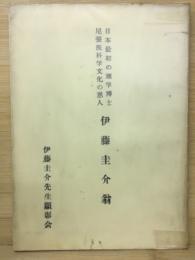 日本最初の理学博士
尾張医科学文化の恩人
伊藤圭介翁
伊藤圭介先生顕彰会